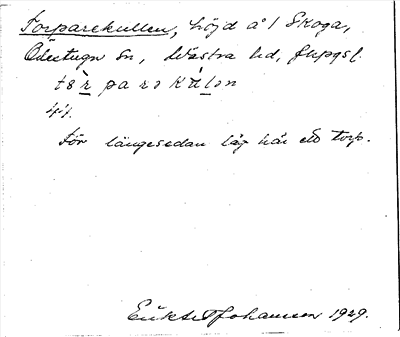 Torparekullen, höjd å 1 Skoga,
Ödestugu sn, Västra hd, Jkpgs l.
tɜr̀parəkɯ́lən
41.
För längesedan låg här ett torp.
Johansson 1929.